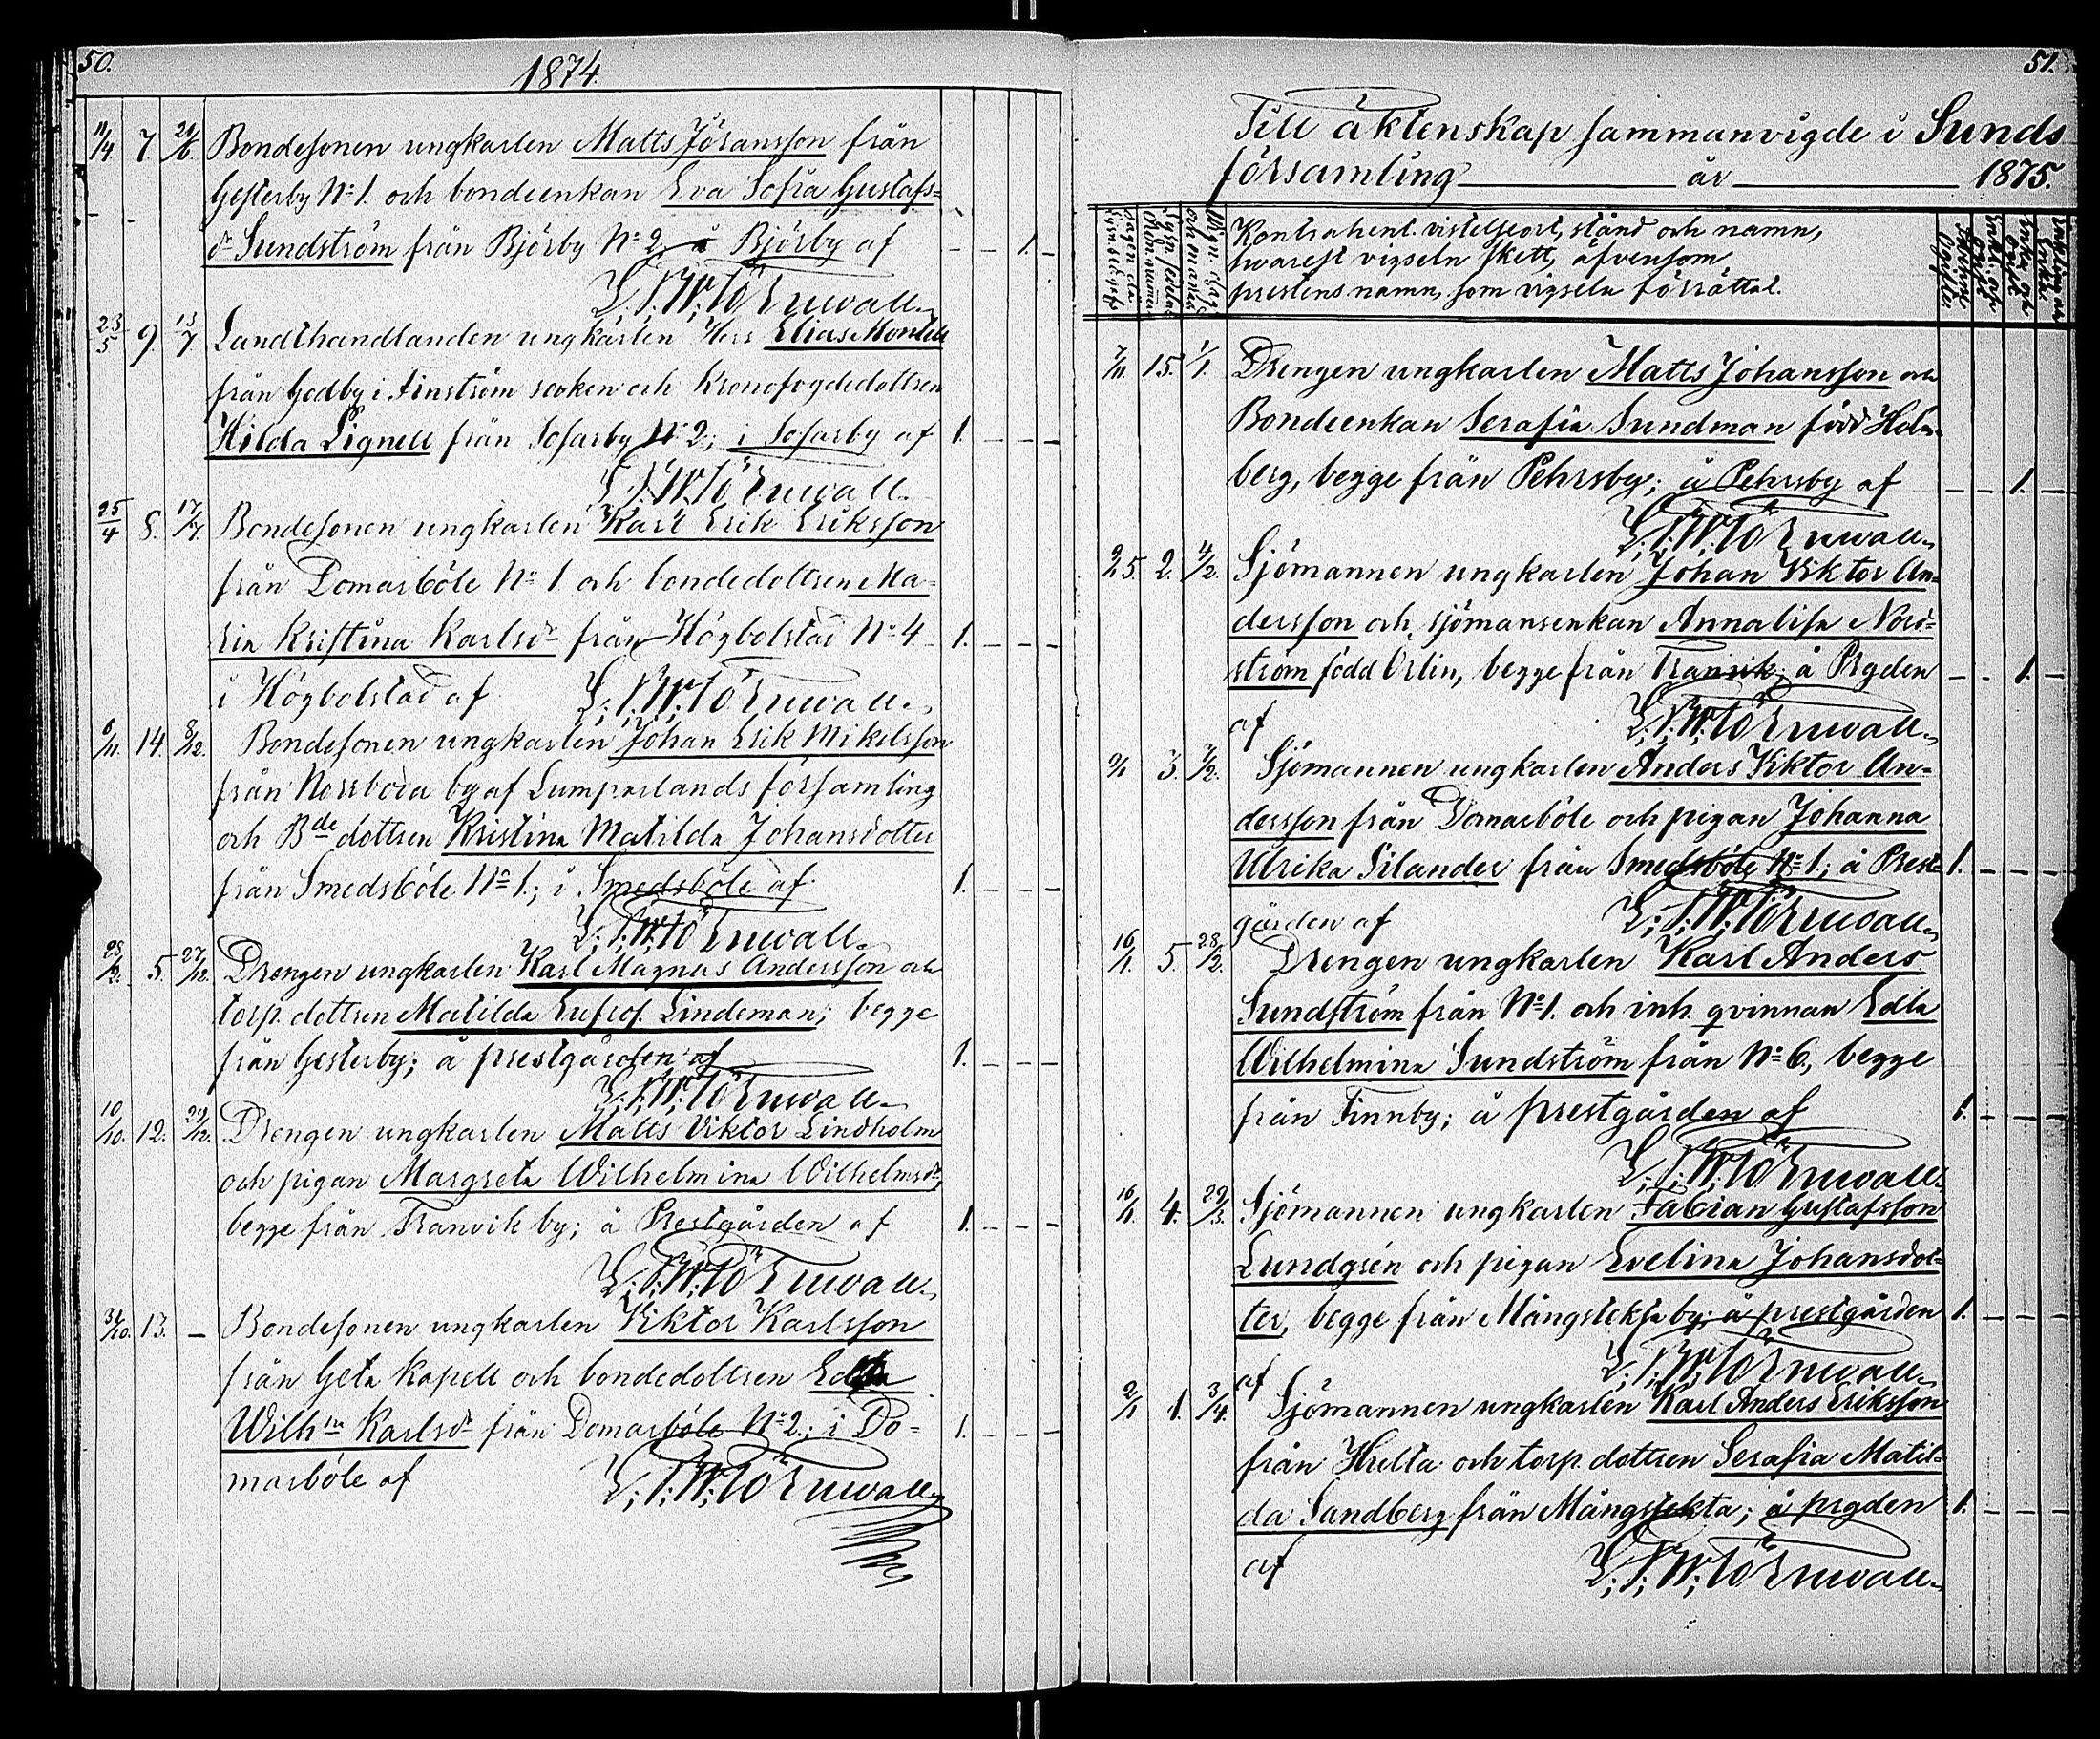 50.
1874.
11/4 7. 21/6. Bondesonen ungkarlen Matts Jöransson från
Gesterby No 1. och bondeenkan Eva Sofia Gustafs=
dr Sundström från Bjärby No 2. å Bjärby af – – 1. –
L. T. W. Törnwall.
23/5 9. 13/7. Landthandlanden ungkarlen Herr Elias Montell
från Godby i Finström socken och Kronofogdedottren
Hilda Lignell från Sofarby No 2; i Sofarby af 1. – – –
L. T. W. Törnwall.
25/4 8. 17/7. Bondesonen ungkarlen Karl Erik Eriksson
från Domarböle No 1 och bondedottren Ma=
ria Kristina Karlsdr från Högbolstad No 4 1. – – –
i Högbolstad af L. T. W. Törnwall.
6/11. 14. 8/12. Bondesonen ungkarlen Johan Erik Mikelsson
från Norrboda by af Lumparlands församling
och Bde dottren Kristina Matilda Johansdotter
från Smedsböle No 1; i Smedsböle af 1. – – –
L. T. W. Törnwall.
28/2. 5. 27/12. Drengen ungkarlen Karl Magnus Andersson och
torp. dottren Matilda Eufros. Lindeman; begge
från Gesterby; å prestgården af 1. – – –
L. T. W. Törnwall.
10/10. 12. 29/12. Drengen ungkarlen Matts Viktor Lindholm
och pigan Margreta Wilhelmina Wilhelmsdr,
begge från Tranvik by; å Prestgården af 1. – – –
L. T. W. Törnwall.
31/10. 13. – Bondesonen ungkarlen Viktor Karlsson
från Geta Kapell och bondedottren Edla
Wilhna Karlsdr från Domarböle No 2.; i Do= 1. – – –
marböle af L. T. W. Törnwall.
51.
Till äktenskap sammanvigde i Sunds
församling år 1875.
Kontrahent. vistelseort, stånd och namn,
hvarest vigseln skett, äfvensom
prestens namn, som vigseln förrättat.
7/11. 15. 1/1. Drengen ungkarlen Matts Johansson och
Bondeenkan Serafia Sundman född Holm=
berg, begge från Pehrsby; å Pehrsby af – – 1. –
L. T. W. Törnwall.
2. 4/2. Sjömannen ungkarlen Johan Viktor An=
dersson och sjömansenkan Annalisa Nord=
ström född Orlin, begge från Tranvik; å Prgden – – 1. –
af L. T. W. Törnwall.
9/1 3. 7/2. Sjömannen ungkarlen Anders Viktor An=
dersson från Domarböle och pigan Johanna
Ulrika Silander från Smedsböle No 1; å Prest= 1. – – –
gården af L. T. W. Törnwall.
16/1. 5. 28/2. Drengen ungkarlen Karl Anders
Sundström från No 1. och inh. qvinnan Edla
Wilhelmina Sundström från No 6., begge
från Finnby; å prestgården af 1. – – –
L. T. W. Törnwall.
16/1 4. 29/3. Sjömannen ungkarlen Fabian Gustafsson
Lundgrén och pigan Evelina Johansdot=
ter, begge från Mångstekta by; å prestgården 1. – – –
af L. T. W. Törnwall.
2/1 1. 3/4. Sjömannen ungkarlen Karl Anders Eriksson
från Hulta och torp. dottren Serafia Matil=
da Sandberg från Mångstekta; å prgden 1. – – –
af L. T. W. Törnwall.